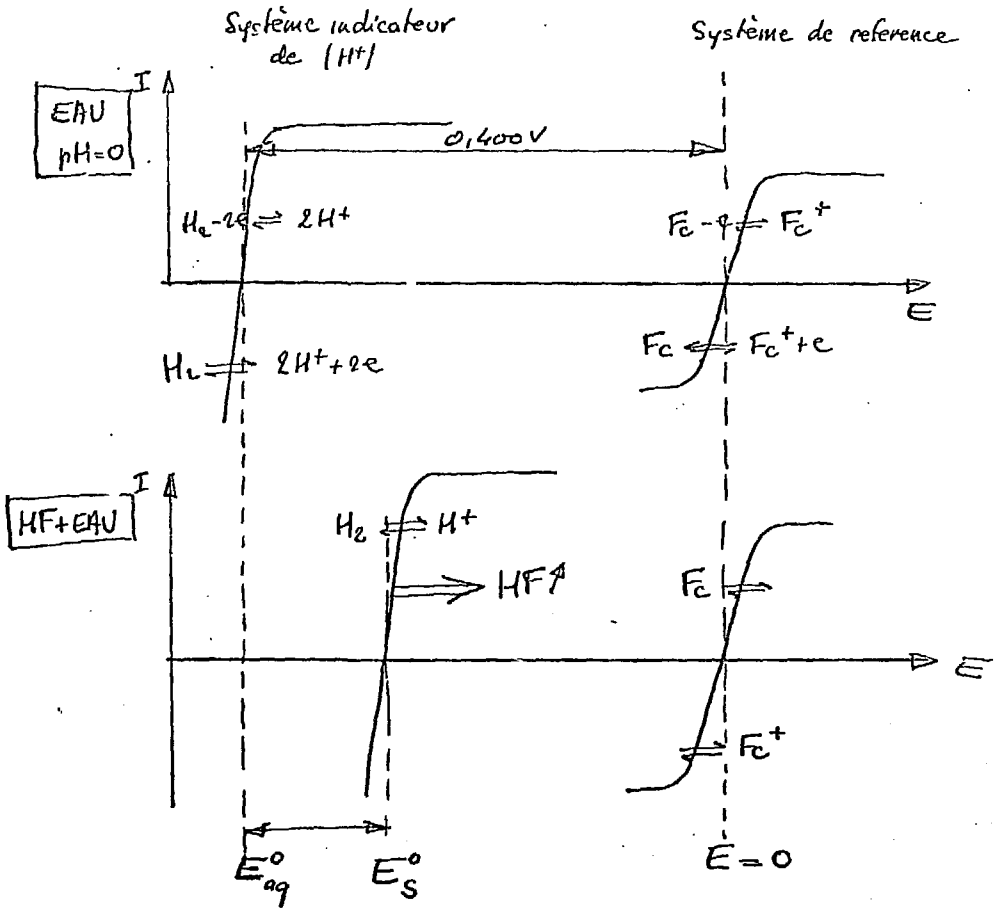 Système indicateur
de |H+|
Système de reference
I
EAU
pH=0
0,400V
H2-2e ⇌ 2H+
Fc-e ⇌ Fc+
E
H2 ⇌ 2H++2e
Fc ⇌ Fc++e
I
HF+EAU
H2 ⇌ H+
HF↑
Fc ⇌
E
⇌ Fc+
E°aq
E°S
E=0